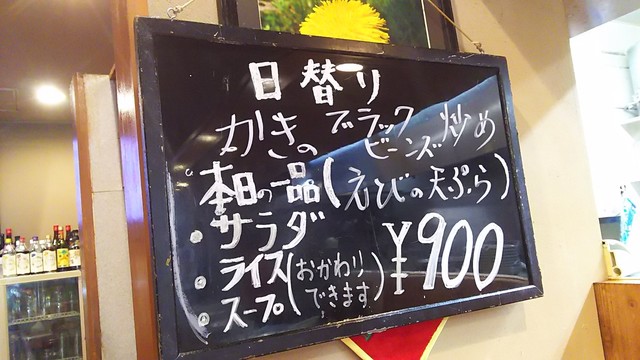 日替り
かきのブラックビーンズ炒め
・本日の一品(えびの天ぷら)
・サラダ
・ライス(おかわりできます)
・スープ
¥900